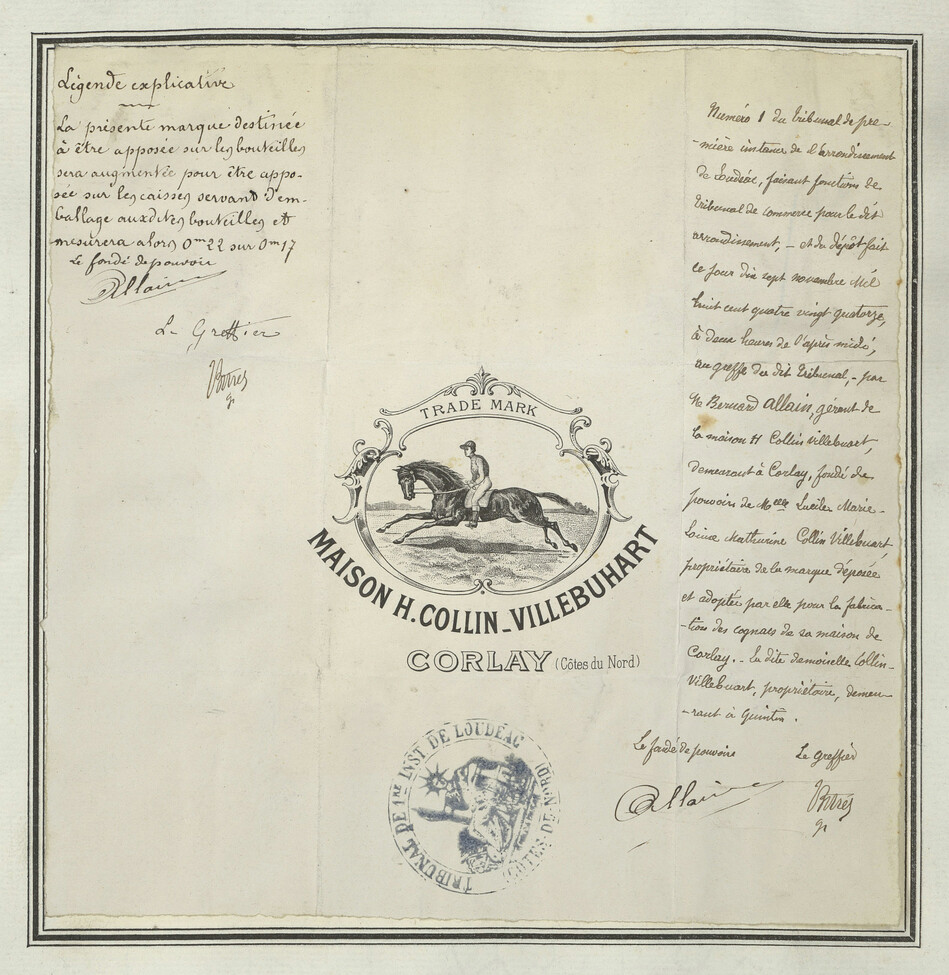 Légende explicative
La présente marque destinée
à être apposée sur les bouteilles
sera augmentée pour être appo-
sée sur les caisses servant d'em-
ballage auxdites bouteilles et
mesurera alors 0m22 sur 0m17
Le fondé de pouvoir
Allain
Le Greffier
TRADE MARK
MAISON H. COLLIN-VILLEBUHART
CORLAY (Côtes du Nord)
TRIBUNAL DE 1RE INST DE LOUDÉAC
(CÔTES-DU-NORD)
Numéro 1 du tribunal de pre-
-mière instance de l'arrondissement
de Loudéac, faisant fonctions de
tribunal de commerce pour le dit
arrondissement, - et du dépôt fait
ce jour dix sept novembre Mil
huit cent quatre vingt quatorze,
à deux heures de l'après midi,
au greffe du dit tribunal, - par
Mr Bernard Allain, gérant de
la maison H Collin Villebuart,
demeurant à Corlay, fondé de
pouvoirs de Melle Lucile Marie-
Louise Mathurine Collin Villebuart
propriétaire de la marque déposée
et adoptée par elle pour la fabrica-
-tion des cognacs de sa maison de
Corlay. - La dite demoiselle Collin-
Villebuart, propriétaire, demeu-
-rant à Quintin.
Le fondé de pouvoirs
Le greffier
Allain